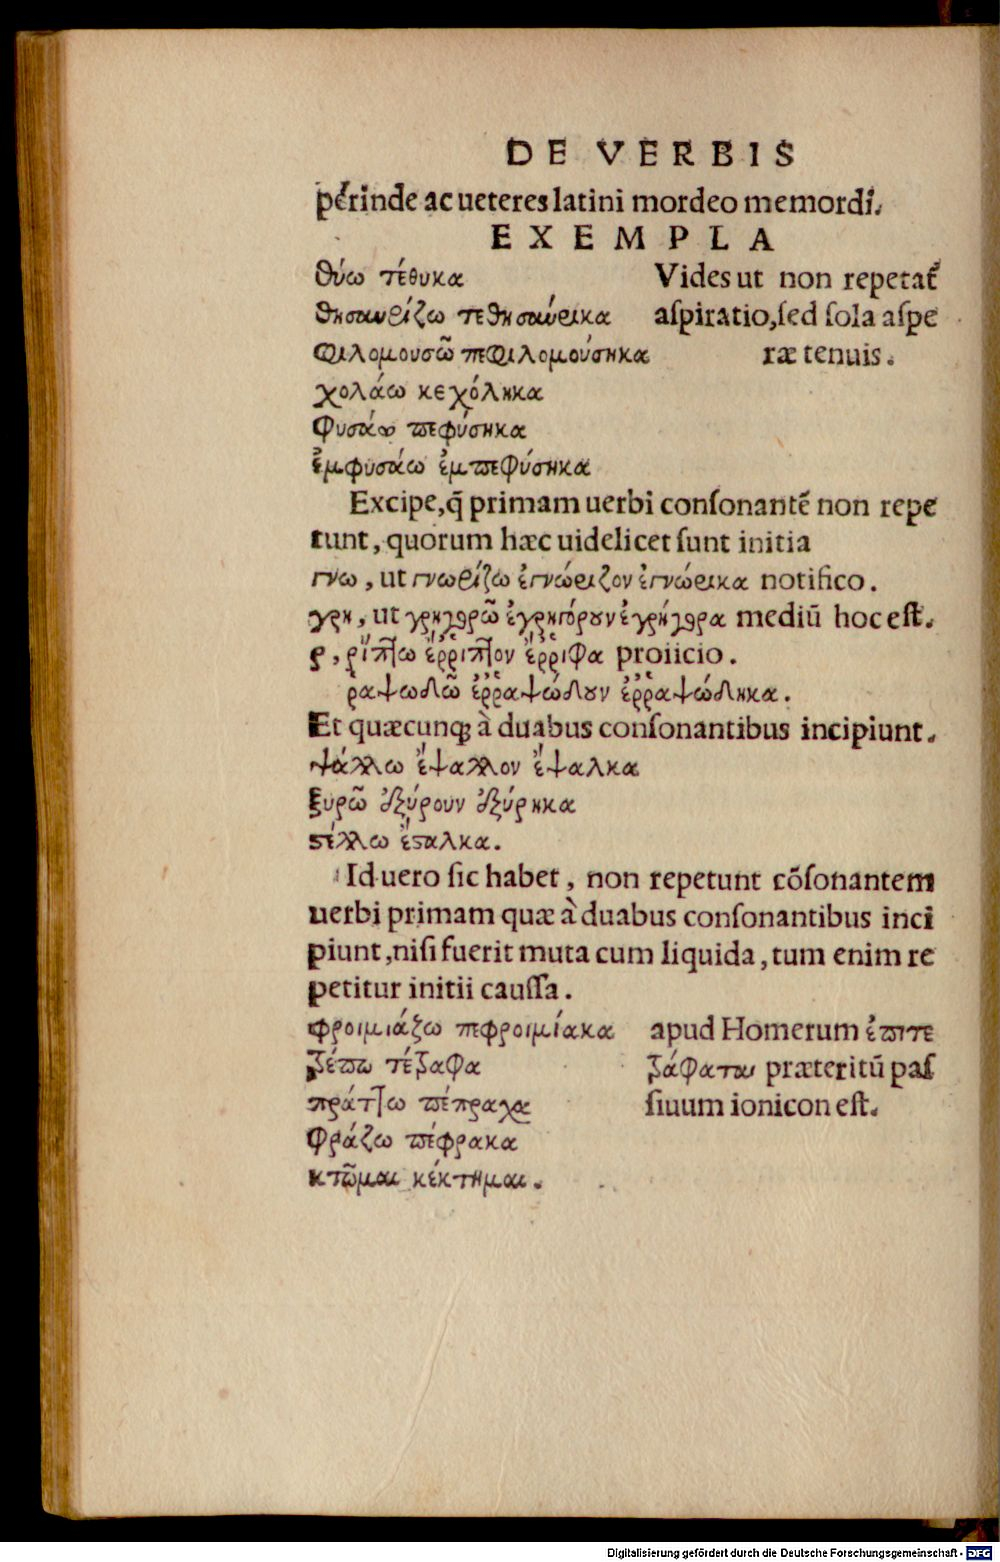 DE VERBIS
perinde ac ueteres latini mordeo memordi.
EXEMPLA
θύω τέθυκα Vides ut non repetat́
θησαυρίζω τεθησαύρικα aſpiratio,ſed ſola aſpe
φιλομουσῶ πεφιλομούσηκα ræ tenuis.
χολάω κεχόληκα
φυσάω πεφύσηκα
ἐμφυσάω ἐμπεφύσηκα
Excipe,q̃ primam uerbi conſonantẽ non repe
tunt, quorum hæc uidelicet ſunt initia
γνω, ut γνωρίζω ἐγνώριζον ἐγνώρικα notifico.
γρη, ut γρηγορῶ ἐγρηγόρουν ἐγρήγορα mediũ hoc eſt.
ρ, ῥίπτω ἔῤῥιπτον ἔῤῥιφα proiicio.
ραψωδῶ ἐῤῥαψώδουν ἐῤῥαψώδηκα.
Et quæcunq; à duabus conſonantibus incipiunt.
ψάλλω ἔψαλλον ἔψαλκα
ξυρῶ ἐξύρουν ἐξύρηκα
ϛέλλω ἔϛαλκα.
Id uero ſic habet, non repetunt cõſonantem
uerbi primam quæ à duabus conſonantibus inci
piunt,niſi fuerit muta cum liquida, tum enim re
petitur initii cauſſa.
φροιμιάζω πεφροιμίακα apud Homerum ἐπιτε
τρέπω τέτραφα τράφαται præteritũ paſ
πράττω πέπραχα ſiuum ionicon eſt.
φράζω πέφρακα
κτῶμαι κέκτημαι.
Digitalisierung gefördert durch die Deutsche Forschungsgemeinschaft - DFG